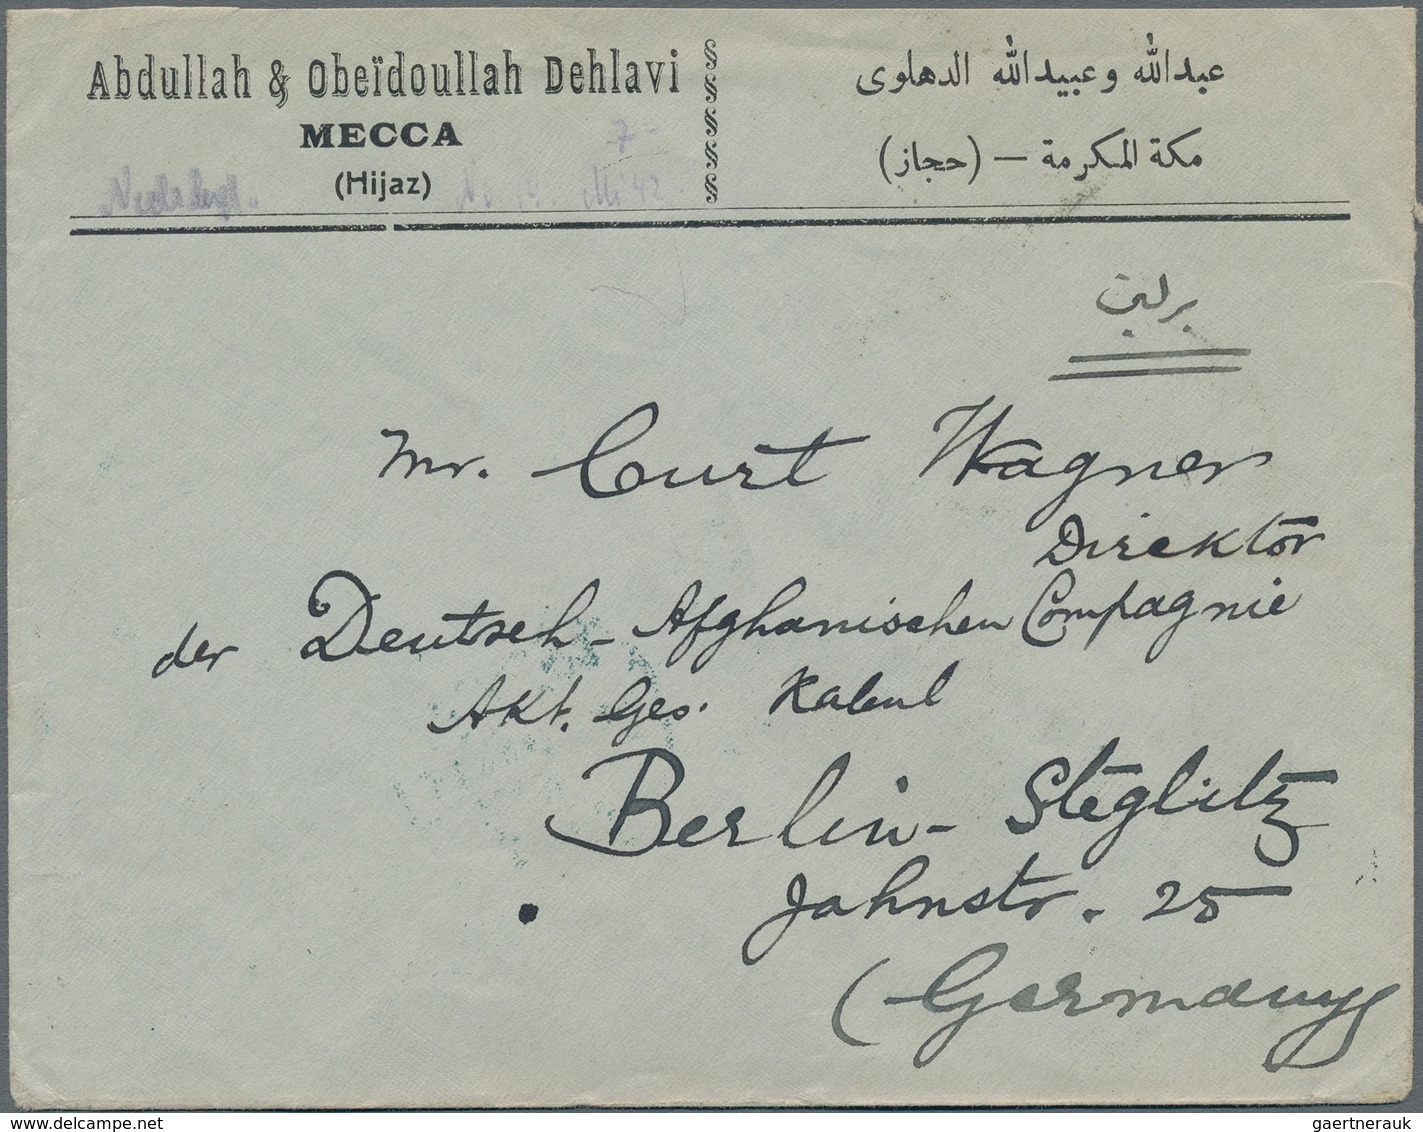 Abdullah & Obeïdoullah Dehlavi
MECCA
(Hijaz)
عبدالله وعبيدالله الدهلوى
مكة المكرمة — (حجاز)
7-
برلين
Mr. Curt Wagner
Direktor
der Deutsch-Afghanischen Compagnie
Akt. Ges. Kabul
Berlin-Steglitz
Jahnstr. 25
(Germany)
delcampe.net
gaertnerauk